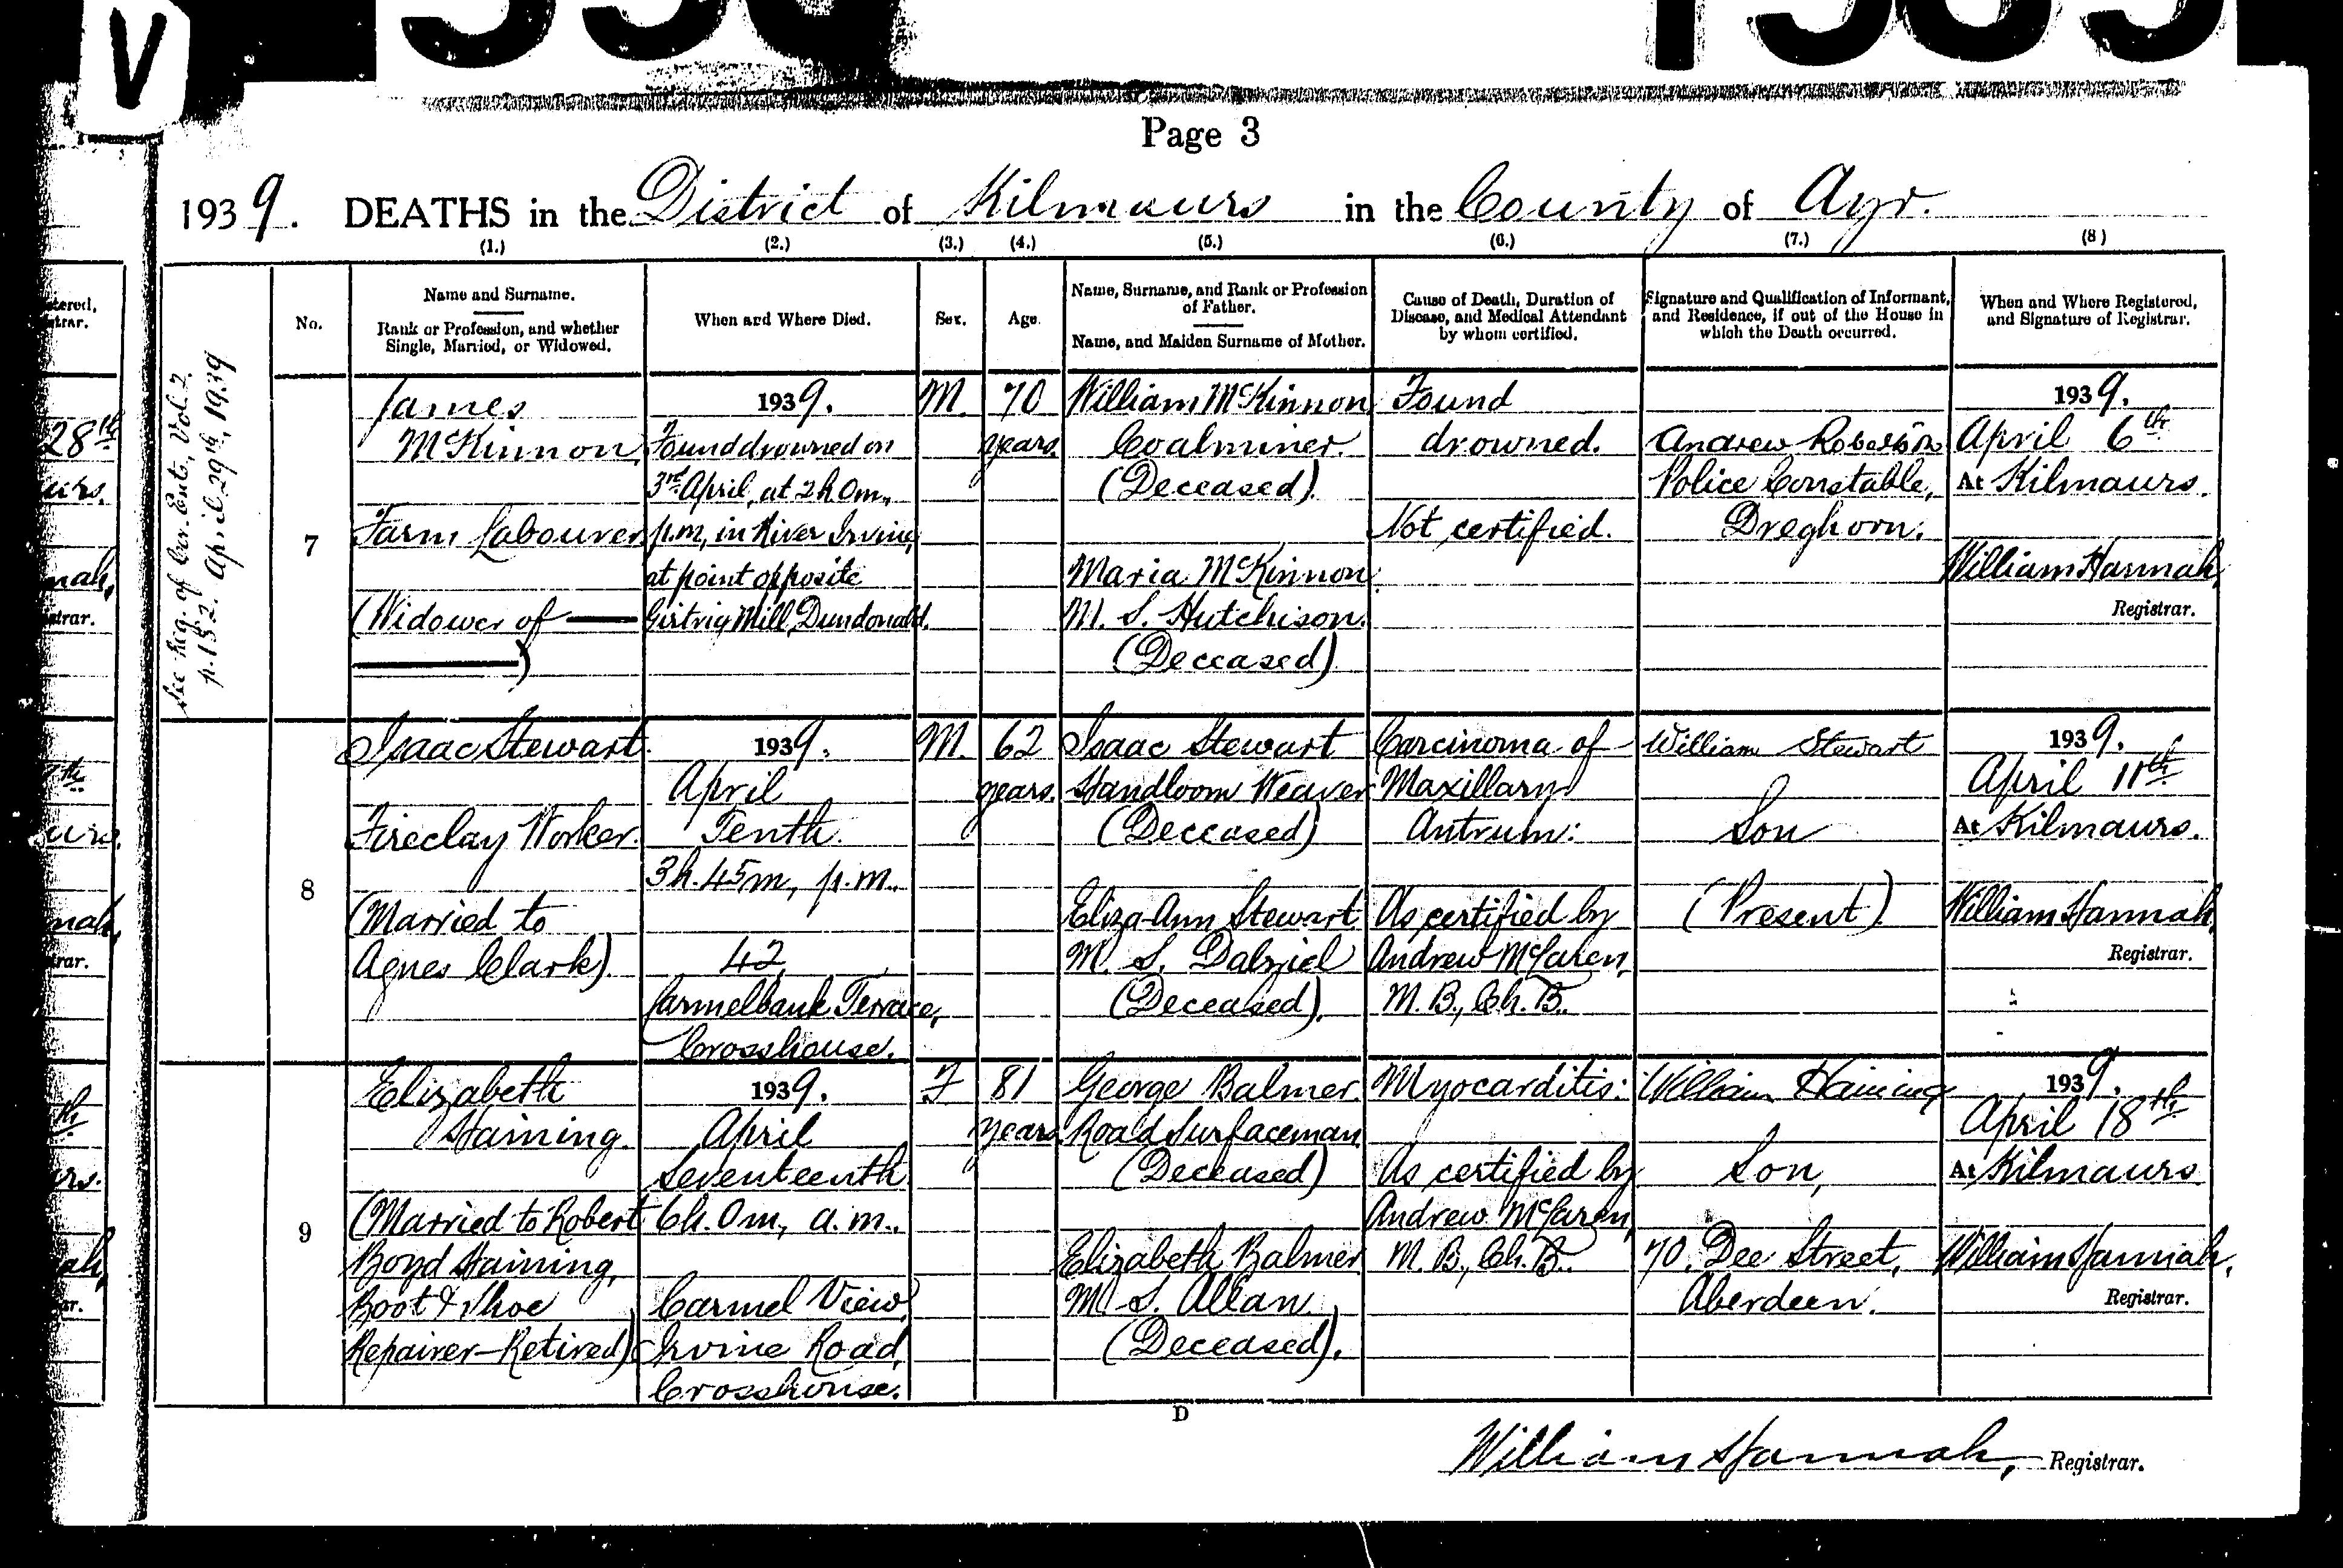 V
Page 3
1939. DEATHS in the District of Kilmaurs in the County of Ayr.
(1.) (2.) (3.) (4.) (5.) (6.) (7.) (8)
No.
Name and Surname.
Rank or Profession, and whether
Single, Married, or Widowed.
When and Where Died.
Sex.
Age.
Name, Surname, and Rank or Profession
of Father.
Name, and Maiden Surname of Mother.
Cause of Death, Duration of
Disease, and Medical Attendant
by whom certified.
Signature and Qualification of Informant,
and Residence, if out of the House in
which the Death occurred.
When and Where Registered,
and Signature of Registrar.
See Reg. of Cor. Ents., Vol. 2,
p. 152. April 29th, 1939
7
James
McKinnon
Farm Labourer
(Widower of
)
1939.
Found drowned on
3rd April, at 2h. 0m.,
p.m., in River Irvine,
at point opposite
Girtrig Mill, Dundonald.
M.
70
years.
William McKinnon
Coalminer.
(Deceased).
Maria McKinnon
M. S. Hutchison.
(Deceased)
Found
drowned.
Not certified.
Andrew Robertson
Police Constable,
Dreghorn.
1939.
April 6th
At Kilmaurs.
William Hannah,
Registrar.
8
Isaac Stewart.
Fireclay Worker.
(Married to
Agnes Clark).
1939.
April
Tenth.
3h. 45m, p.m.,
42,
Carmelbank Terrace,
Crosshouse.
M.
62
years.
Isaac Stewart
Handloom Weaver
(Deceased)
Eliza-Ann Stewart
M. S. Dalziel
(Deceased).
Carcinoma of
Maxillary
Antrum:
As certified by
Andrew McLaren,
M. B., Ch. B..
William Stewart
Son
(Present).
1939.
April 11th
At Kilmaurs.
William Hannah,
Registrar.
9
Elizabeth
Haining.
(Married to Robert
Boyd Haining,
Boot & Shoe
Repairer-Retired)
1939.
April
Seventeenth
6h. 0m, a.m.,
Carmel View,
Irvine Road,
Crosshouse.
F
81
years.
George Balmer
Road Surfaceman
(Deceased)
Elizabeth Balmer
M. S. Allan
(Deceased).
Myocarditis:
As certified by
Andrew McLaren,
M. B., Ch. B..
William Haining
Son,
70, Dee Street,
Aberdeen.
1939.
April 18th
At Kilmaurs
William Hannah,
Registrar.
D
William Hannah, Registrar.